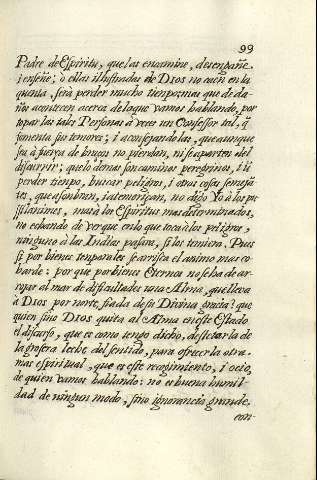 99
Padre de Espiritu, que las encamine, desengañe,
i enseñe; ò ellas illustradas de Dios no caen en la
quenta, será perder mucho tiempo; mas que de da-
ños acontecen acerca de lo que vamos hablando, por
topar las tales Personas à veces un Confessor tal, q̃
fomenta sus temores; i aconsejandolas, que aunque
sea à fuerça de braços no pierdan, ni se aparten del
discurrir; que lo demas son caminos peregrinos, i ès
perder tiempo, buscar peligros, i otras cosas semejã-
tes, que asombran, i atemoriçan, no digo Yo à los pu-
silanimes, mas à los Espiritus mas determinados,
no echando de ver que en lo que toca à los peligros,
ninguno à las Indias pasara, si los temiera. Pues
si por bienes temporales se arrisca el animo mas co-
barde: por que por bienes Eternos no se ha de ar-
rojar al mar de dificultades una Alma, que lleva
à Dios por norte, fiada de su Divina gracia? que
quien sino Dios quita al Alma en este Estado
el discurso, que es como tengo dicho, destetarla de
la grosera leche del sentido, para ofrecerla otra
mas espiritual, que es este recogimiento, i ocio,
de quien vamos hablando: no es buena humil-
dad de ningun modo, sino ignorancia grande,
con-